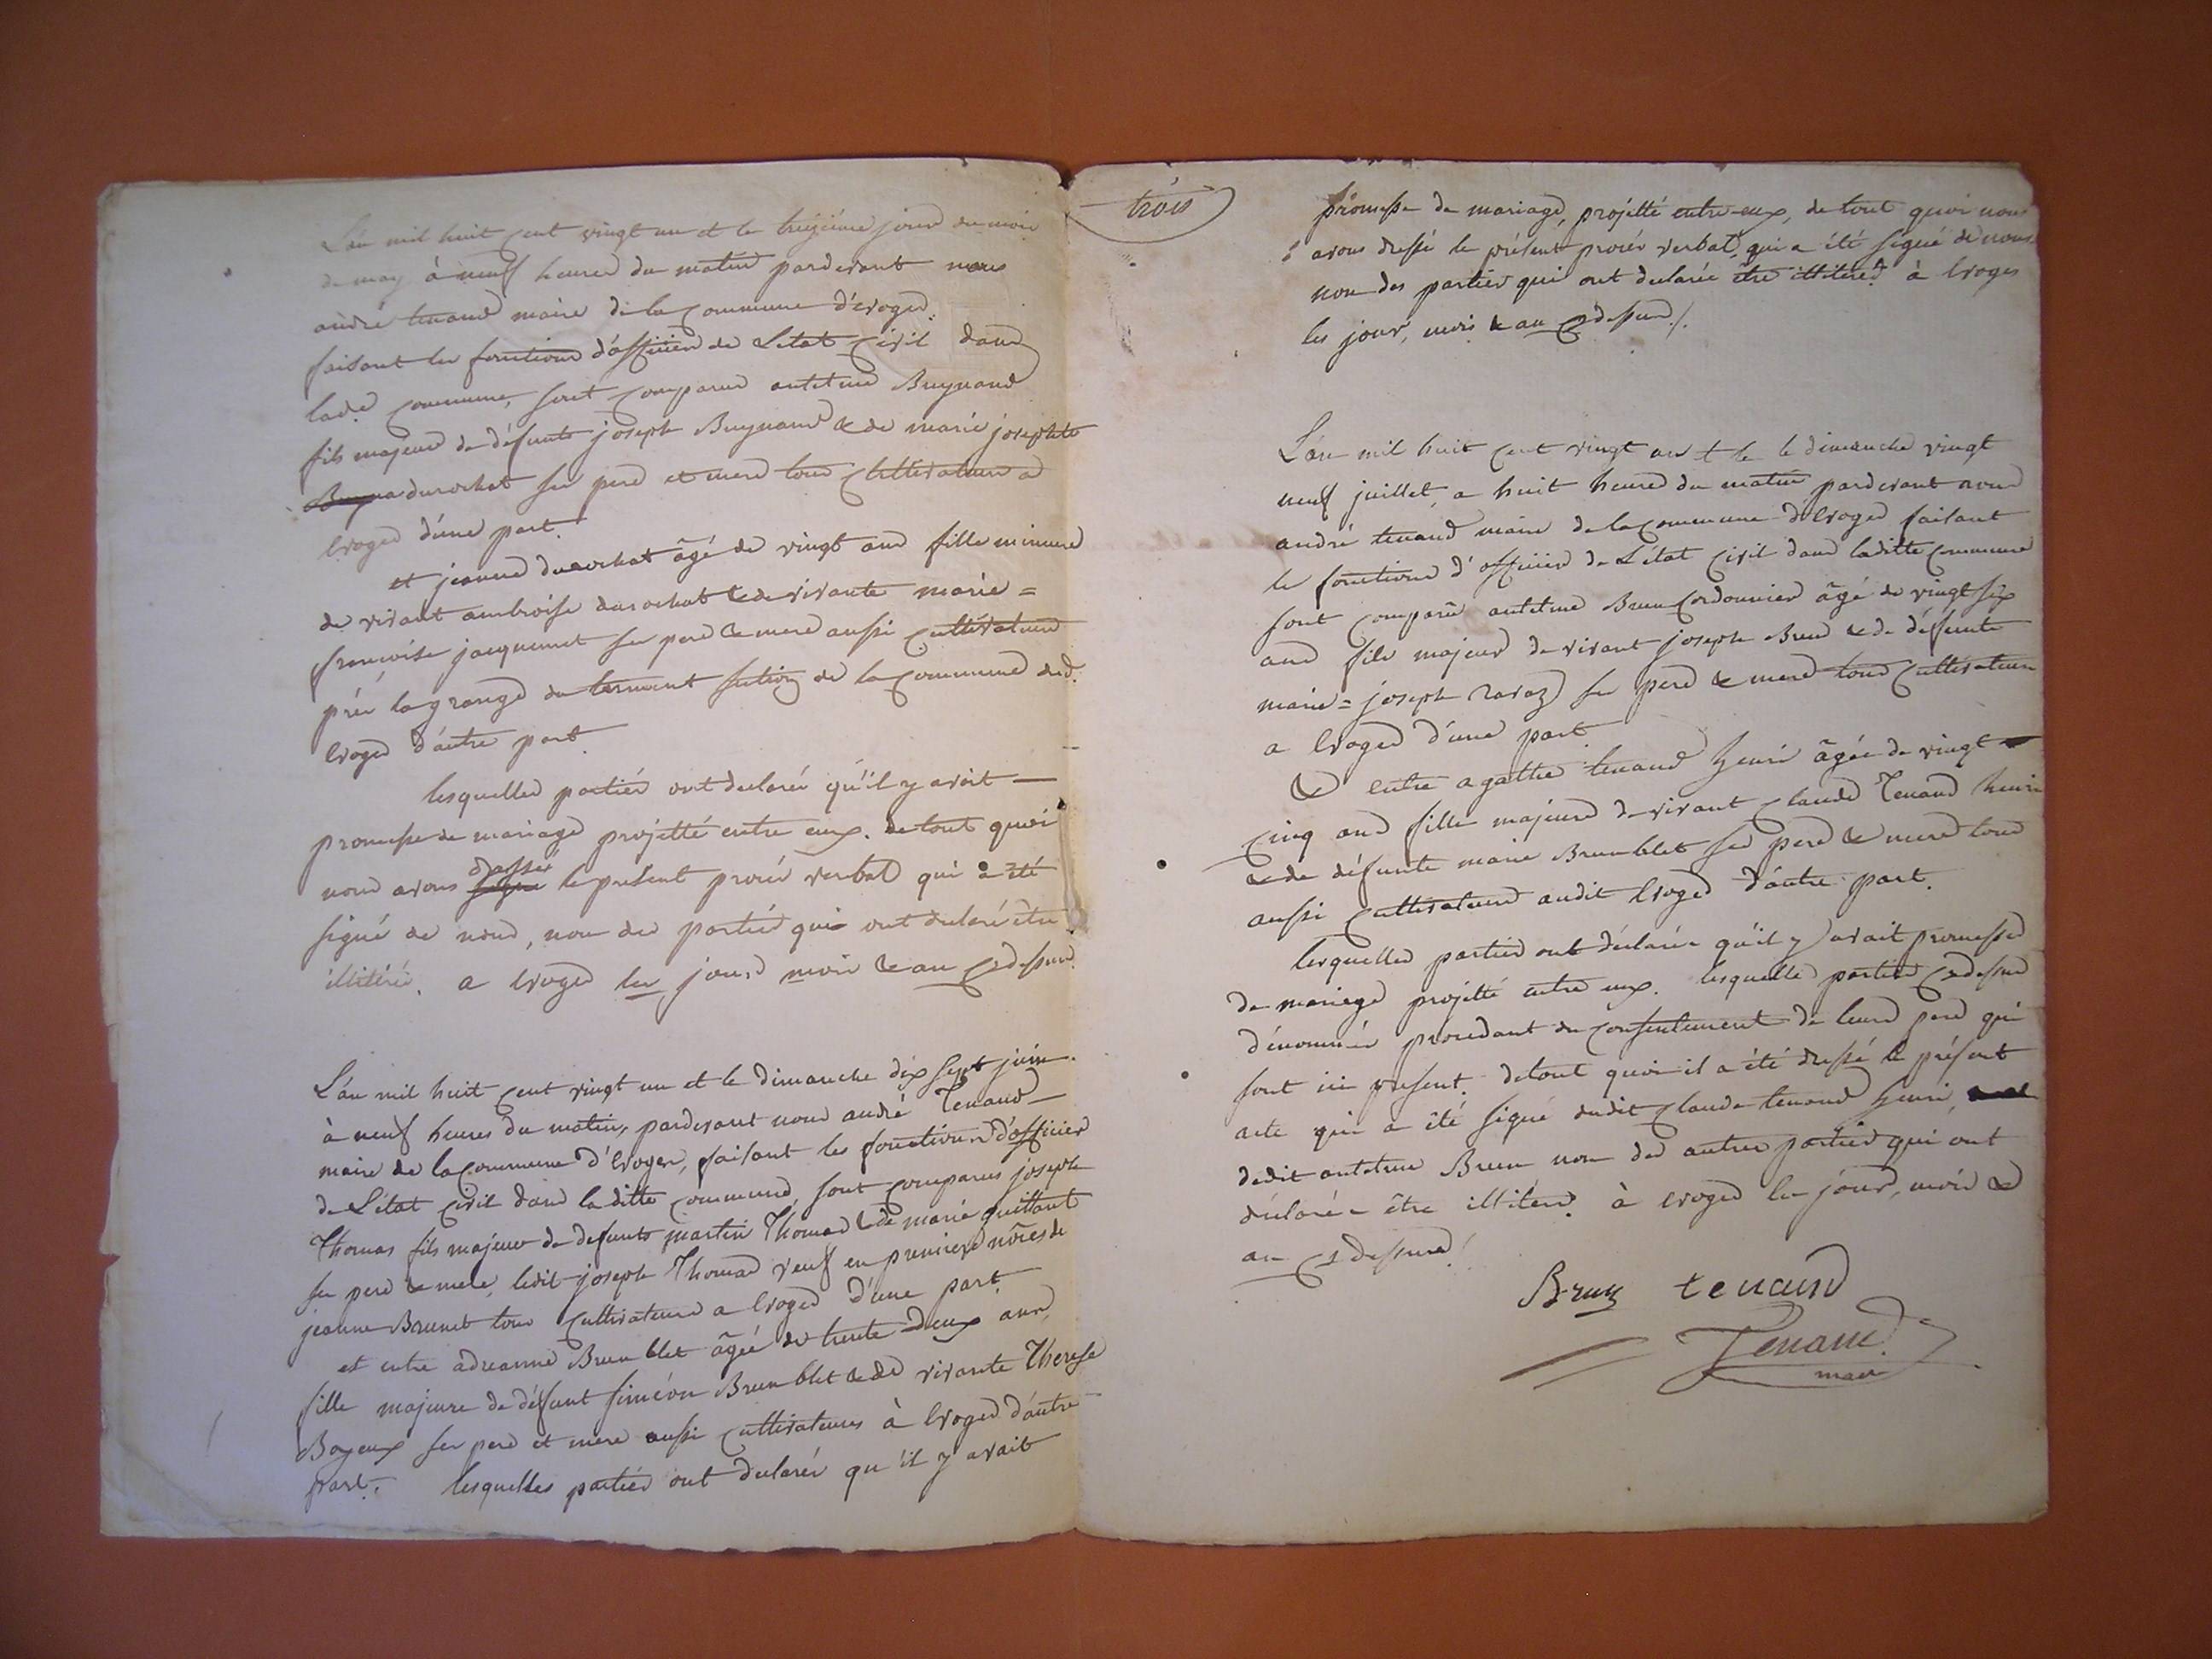 L'an mil huit cent vingt un et le treizieme jour du mois
de may à neuf heures du matin pardevant nous
andré tenand maire de la commune d'évoges
faisant les fonctions d'officier de L'etat Civil dans
lad.e commune, sont comparus antelme Buynand
fils majeur de défunts joseph Buynand & de marie josephte
Buyna durochat ses pere et mere tous Cultivateurs a
Evoges d'une part.
et jeanne durochat âgé de vingt ans fille mineure
de vivant ambroise durochat & de vivante marie =
francoise jacquemet ses pere & mere aussi Cultivateurs
près la grange du section de la commune dud.
Evoges d'autre part.
lesquelles partiés ont declarés qu'il y avoit
promesse de mariage projetté entre eux. de tout quoi
nous avons signé dressé le présent procés verbal qui a été
signé de nous, non des partiés qui ont declaré être
illitérés. a Evoges les jour, mois & an Cy dessus.
L'an mil huit cent vingt un et le dimanche dix sept juin
à neuf heures du matin, pardevant nous andré Tenand
maire de la Commune d'Evoges, faisant les fonctions d'officier
de L'état Civil dans laditte commune, sont comparus joseph
Thomas fils majeur de defunts martin Thomas & de marie guittant
ses pere & mere, ledit joseph Thomas veuf en premiere nôces de
jeanne Brunet tous Cultivateurs a Evoges d'une part.
et entre adrianne Brun blet âgée de trente deux ans,
fille majeure de défunt siméon Brun blet & de vivante Therese
Bozeux ses pere et mere aussi Cultivateurs à Evoges d'autre
part. lesquelles partiés ont declarés qu'il y avait
trois
promesse de mariage, projetté entre eux, de tout quoi nous
avons dressé le présent procés verbal, qui a été signé de nous
non des partiés qui ont declarée être illiterés à Evoges
les jour, mois & an Cy dessus./.
L'an mil huit cent vingt un & le dimanche vingt
neuf juillet, a huit heures du matin pardevant nous
andré tenand maire de la Commune d'Evoges faisant
les fonctions d'officier de L'état Civil dans laditte commune
sont comparu antelme Brun Cordonnier âgé de vingt six
ans fils majeur de vivant joseph Brun & de défunte
marie = joseph ravaz ses pere & mere tous Cultivateurs
a Evoges d'une part.
& entre agathe tenand henri âgée de vingt
Cinq ans fille majeure de vivant Claude Tenand henri
& de défunte marie Brun blet ses pere & mere tous
aussi Cultivateurs audit Evoges d'autre part.
lesquelles parties ont déclarée qu'il y avait promesse
de mariage projetté entre eux. lesquelles parties Cy dessus
dénommés procedant du consentement de leurs pere qui
sont ici present. de tout quoi il a été dressé le présent
acte qui a été signé dudit Claude tenand henri,
dedit antelme Brun non des autres partiés qui ont
déclarée être illitérés. à Evoges les jour, mois &
an Cy dessus./
Brun tenand
Tenand
maire